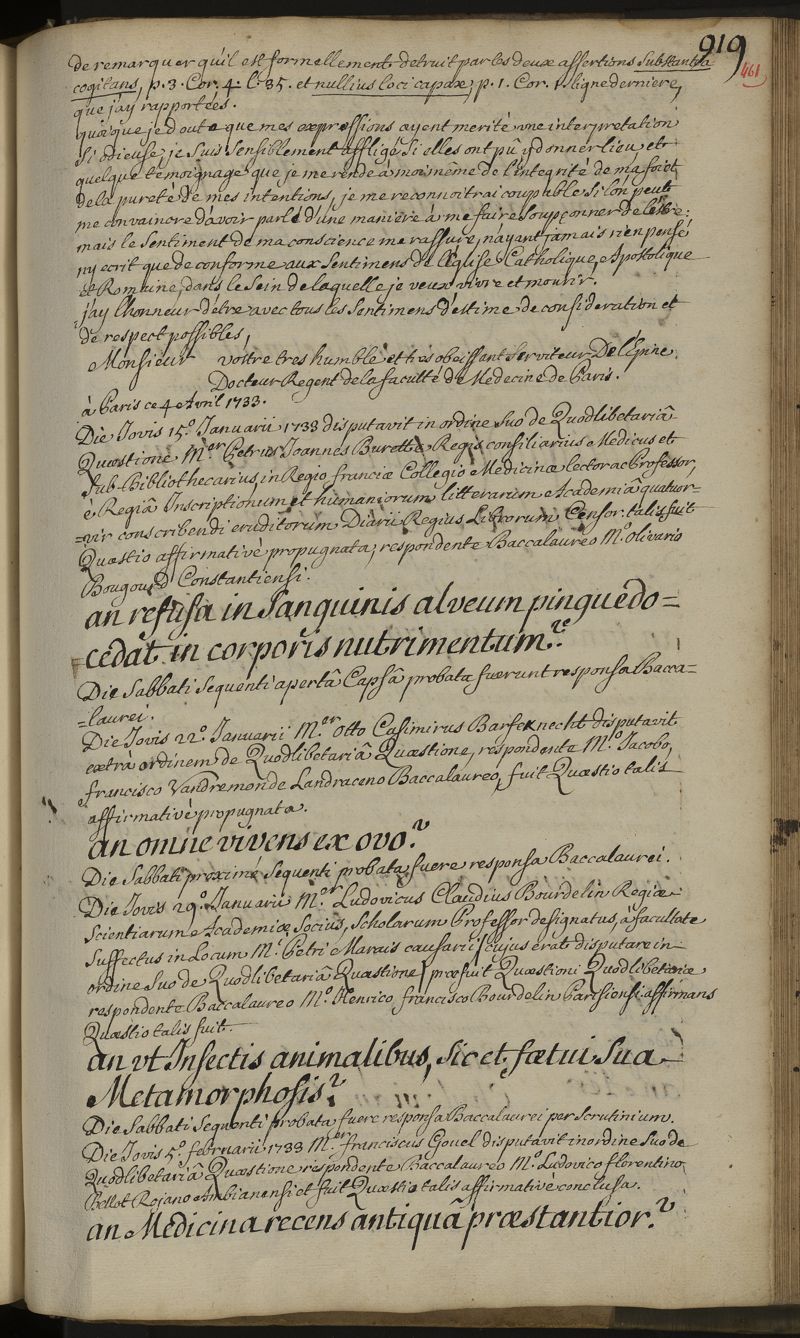 919
461
de remarquer qu'il est formellement detruit par les deux assertions Substantia
cogitans, p. 3. Cor. 4. l. 35. et nullius loci capax, p. 1. Cor. 1. ligne derniere,
que j'ay rapportées.
quoique je doute que mes expressions ayent merité une interpretation
si odieuse, je suis sensiblement affligé si elles ont pû y donner lieu, et
quelque témoignage que je me rende à moi même de l'integrité de ma foi et
de la pureté de mes intentions, je me reconnoitrai coupable si l'on peut
me convaincre d'avoir parlé d'une maniere à me faire soupçonner de l'etre:
mais le sentiment de ma conscience me rassure, n'ayant jamais rien pensé
ny ecrit que de conforme aux sentimens de l'Eglise Catholique, Apostolique
et Romaine, dans le sein de laquelle je veux vivre et mourir.
j'ay l'honneur d'être avec tous les sentimens d'estime de consideration et
de respect possibles,
Monsieur votre tres humble et tres obeissant serviteur De l'Epine.
Docteur Regent de la faculté de Medecine de Paris.
à Paris ce 4 Avril 1733.
Die Jovis 15.º Januarii 1733 disputavit in ordine suo de Quodlibetariâ
Quæstione M.er Petrus Joannes Burette Regis consiliarius Medicus et
sub-Bibliothecarius, in Regio franciæ Collegio Medicinæ lector ac Professor,
è Regiâ Inscriptionum et humaniorum litterarum Academiâ quatuor=
=vir conscribendi eruditorum Diarii Regius Librorum Censor. talis fuit
Quæstio affirmativè propugnata, respondente Baccalaureo M.º olivario
Bougourd Constantiensi.
an refusa in Sanguinis alveum pinguedo=
=cedat in corporis nutrimentum?
Die Sabbati sequenti apertâ Capsâ probata fuerunt responsa Bacca=
=laurei.
Die Jovis 22º. Januarii M.er Otto Casimirus Barfeknecht disputavit
extra ordinem de Quodlibetariâ Quæstione, respondente M.º Jacobo,
francisco Vandremonde Landraceno Baccalaureo, fuit Quæstio talis
affirmativè propugnata.
an omne vivens ex ovo?
Die Sabbati proximè sequenti probata fuere responsa Baccalaurei.
Die Jovis 29º. Januarii M.er Ludovicus Claudius Bourdelin Regiæ
Scientiarum Academiæ Socius, Scholarum Professor designatus, à facultate
suffectus in Locum M.i Petri Marais causarii (cujus erat disputare in
ordine suo de Quodlibetariâ Quæstione) præfuit Quæstioni Quodlibetariæ
respondente Baccalaureo M.º Henrico, francisco Bourdelin Parisiensi. affirmans
Quæstio talis fuit.
an vt Insectis animalibus, sic et fætui sua
Metamorphosis?
Die Sabbati sequenti probata fuere responsa Baccalaurei per scrutinium.
Die Jovis 5º. februarii 1733 M.er franciscus Gouel disputavit in ordine suo de
Quodlibetariâ Quæstione respondente Baccalaureo M.º Ludovico florentino
Bellot Rojano Ambianensi et fuit Quæstio talis affirmativè conclusa.
an Medicina recens antiquâ præstantior?